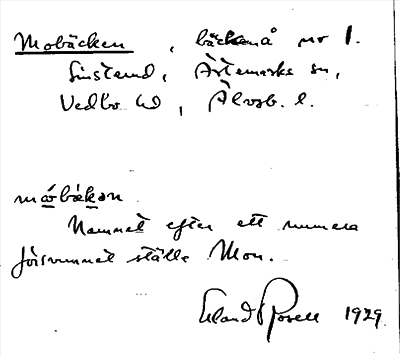 Mobäcken , bäckenå nr 1.
Sinstemd, Ärtemarks sn,
Vedbo hd , Älvsb. l.
måbäkan
Namnet efter ett numera
försvunnet ställe Mon.
Erland Rosell 1929.